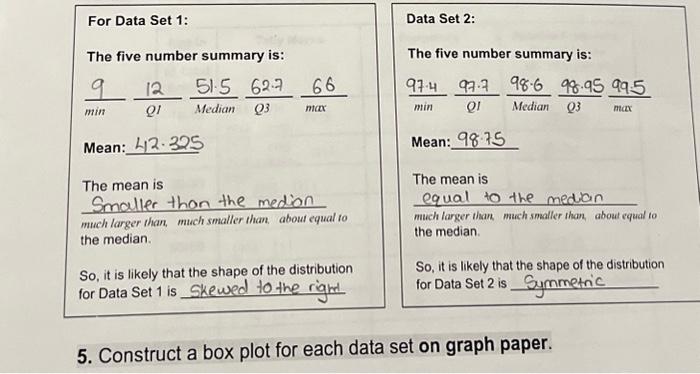 For Data Set 1:
The five number summary is:
9 12 51.5 62.7 66
min Q1 Median Q3 max
Mean: 42.325
The mean is
Smaller than the median
much larger than, much smaller than, about equal to
the median.
So, it is likely that the shape of the distribution
for Data Set 1 is Skewed to the right
Data Set 2:
The five number summary is:
97.4 97.7 98.6 98.95 99.5
min Q1 Median Q3 max
Mean: 98.75
The mean is
equal to the median
much larger than, much smaller than, about equal to
the median.
So, it is likely that the shape of the distribution
for Data Set 2 is Symmetric
5. Construct a box plot for each data set on graph paper.